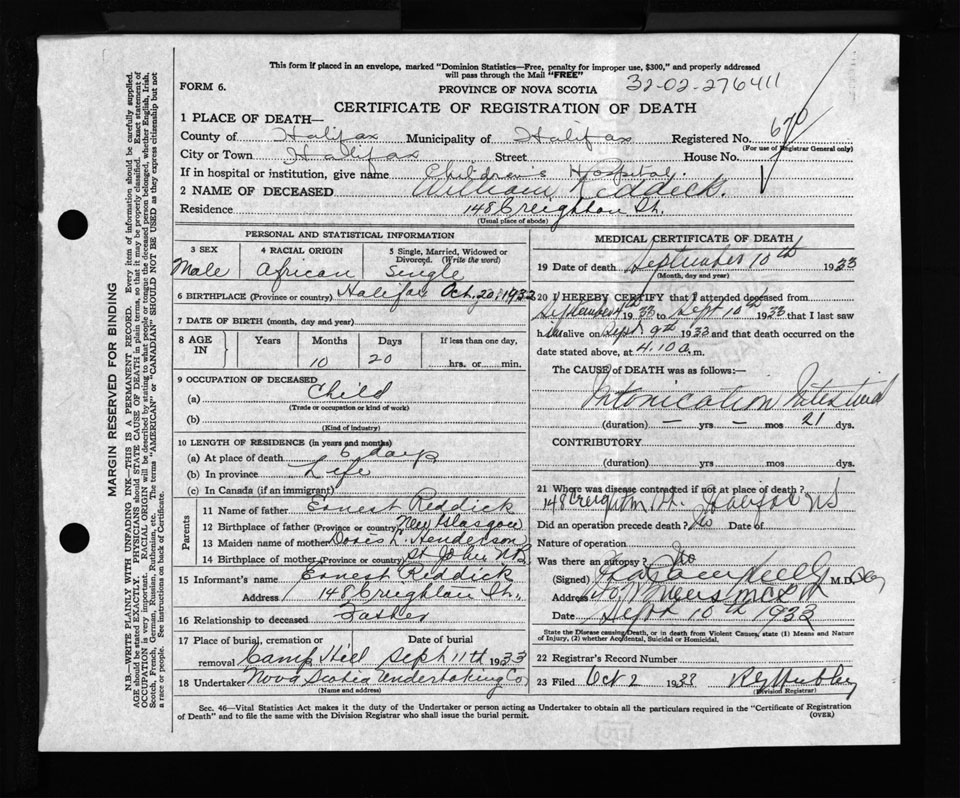 This form if placed in an envelope, marked "Dominion Statistics—Free, penalty for improper use, $300," and properly addressed
will pass through the Mail "FREE"
32-02-276411
FORM 6.
PROVINCE OF NOVA SCOTIA
CERTIFICATE OF REGISTRATION OF DEATH
1 PLACE OF DEATH—
County of Halifax Municipality of Halifax Registered No. 670
(For use of Registrar General only)
City or Town Halifax Street House No.
If in hospital or institution, give name Children's Hospital.
2 NAME OF DECEASED William Reddick.
Residence 148 Creighton St.
(Usual place of abode)
PERSONAL AND STATISTICAL INFORMATION
3 SEX 4 RACIAL ORIGIN 5 Single, Married, Widowed or Divorced. (Write the word)
Male African Single
6 BIRTHPLACE (Province or country) Halifax Oct. 20, 1932
7 DATE OF BIRTH (month, day and year)
8 AGE IN Years Months Days If less than one day,
10 20 hrs. or min.
9 OCCUPATION OF DECEASED
(a) Child
(Trade or occupation or kind of work)
(b)
(Kind of industry)
10 LENGTH OF RESIDENCE (in years and months)
(a) At place of death 6 days
(b) In province Life
(c) In Canada (if an immigrant)
Parents
11 Name of father Ernest Reddick
12 Birthplace of father (Province or country) New Glasgow
13 Maiden name of mother Doris Henderson
14 Birthplace of mother (Province or Country) St John N.B.
15 Informant's name Ernest Reddick
Address 148 Creighton St.
16 Relationship to deceased Father
17 Place of burial, cremation or removal Date of burial
Camp Hill Sept 11th 1933
18 Undertaker Nova Scotia Undertaking Co
(Name and address)
MEDICAL CERTIFICATE OF DEATH
19 Date of death September 10th 1933
(Month, day and year)
20 I HEREBY CERTIFY that I attended deceased from
September 4th 1933 to Sept 10th 1933 that I last saw
h alive on Sept. 9th 1933 and that death occurred on the
date stated above, at 4.10 a. m.
The CAUSE of DEATH was as follows:—
Intoxication Intestinal
(duration) — yrs — mos 21 dys.
CONTRIBUTORY
(duration) yrs. mos. dys.
21 Where was disease contracted if not at place of death?
148 Creighton St. Halifax NS
Did an operation precede death? No Date of
Nature of operation
Was there an autopsy? No
(Signed) M.D.
Address
Date Sept 10th 1933
State the Disease causing Death, or in death from Violent Causes, state (1) Means and Nature
of Injury, (2) whether Accidental, Suicidal or Homicidal.
22 Registrar's Record Number
23 Filed Oct 2 1933
(Division Registrar)
Sec. 46—Vital Statistics Act makes it the duty of the Undertaker or person acting as Undertaker to obtain all the particulars required in the "Certificate of Registration
of Death" and to file the same with the Division Registrar who shall issue the burial permit. (OVER)
MARGIN RESERVED FOR BINDING
N.B.—WRITE PLAINLY WITH UNFADING INK—THIS IS A PERMANENT RECORD. Every item of information should be carefully supplied.
AGE should be stated EXACTLY. PHYSICIANS should STATE CAUSE OF DEATH in plain terms, so that it may be properly classified. Exact statement of
OCCUPATION is very important. RACIAL ORIGIN will be described by stating to what people or tongue the deceased person belonged, whether English, Irish,
Scotch, French, German, Russian, Ruthenian, etc. The terms "AMERICAN" or "CANADIAN" SHOULD NOT BE USED as they express citizenship but not
a race or people. See instructions on back of Certificate.